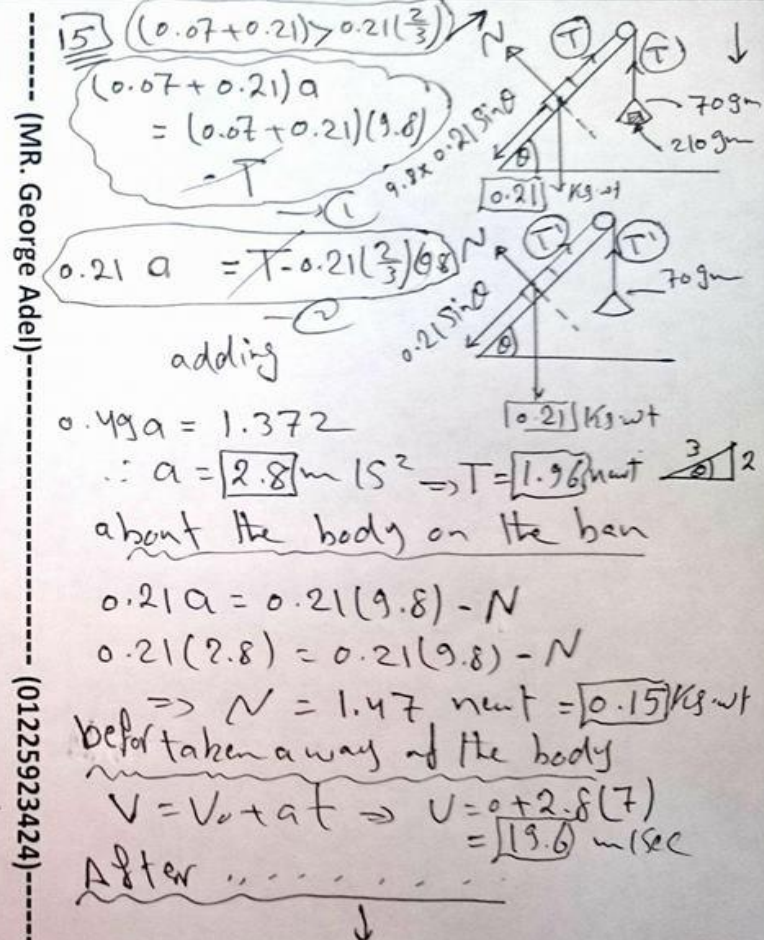 15 (0.07+0.21)>0.21(2/3)
(0.07+0.21)a
= (0.07+0.21)(9.8)
- T
→ 1
0.21 a = T-0.21(2/3)(9.8)
→ 2
adding
0.49a = 1.372
∴ a = 2.8 m/s² ⇒ T = 1.96 newt
about the body on the ban
0.21a = 0.21(9.8) - N
0.21(2.8) = 0.21(9.8) - N
⇒ N = 1.47 newt = 0.15 Kg.wt
befor taken away of the body
V = V₀ + at ⇒ V = 0+2.8(7)
= 19.6 m/sec
After ........
N
T
T
70gm
210gm
9.8x0.21 Sinθ
θ
0.21 Kg.wt
N
T'
T'
70gm
0.21 Sinθ
θ
0.21 Kg.wt
3
2
θ
------ (MR. George Adel)------------------------------ (01225923424)------